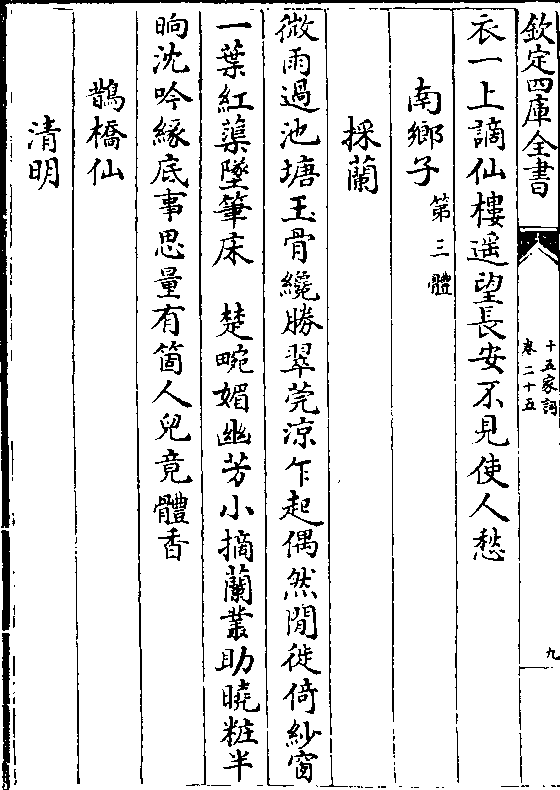 欽定四庫全書
十五家詞
卷二十五
九
衣一上謫仙樓遥望長安不見使人愁
南鄉子第三體
採蘭
微雨過池塘玉骨纔勝翠莞涼乍起偶然閒徙倚紗窗
一葉紅蕖墜筆床　楚畹媚幽芳小摘蘭叢助曉粧半
晌沈吟緣底事思量有箇人兒竟體香
鵲橋仙
清明